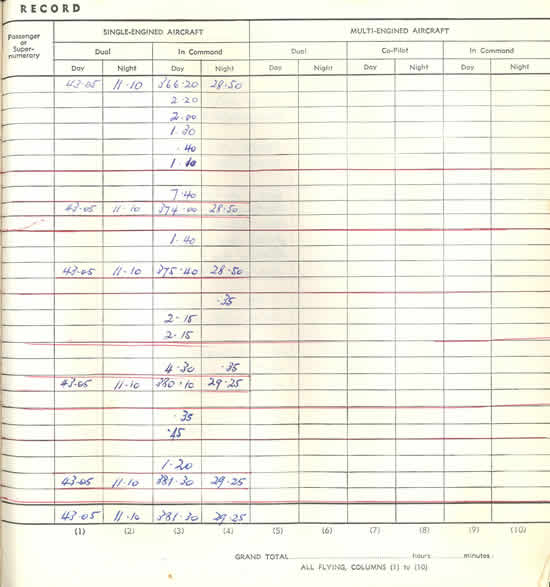 RECORD
Passenger or Super- numerary
SINGLE-ENGINED AIRCRAFT MULTI-ENGINED AIRCRAFT
Dual In Command Dual Co-Pilot In Command
Day Night Day Night Day Night Day Night Day Night
43·05 11·10 366·20 28·50
2·20
2·00
1·30
·40
1·10
7·40
43·05 11·10 374·00 28·50
1·40
43·05 11·10 375·40 28·50
·35
2·15
2·15
4·30 ·35
43·05 11·10 380·10 29·25
·35
·45
1·20
43·05 11·10 381·30 29·25
43·05 11·10 381·30 29·25
(1) (2) (3) (4) (5) (6) (7) (8) (9) (10)
GRAND TOTAL hours minutes
ALL FLYING, COLUMNS (1) to (10)